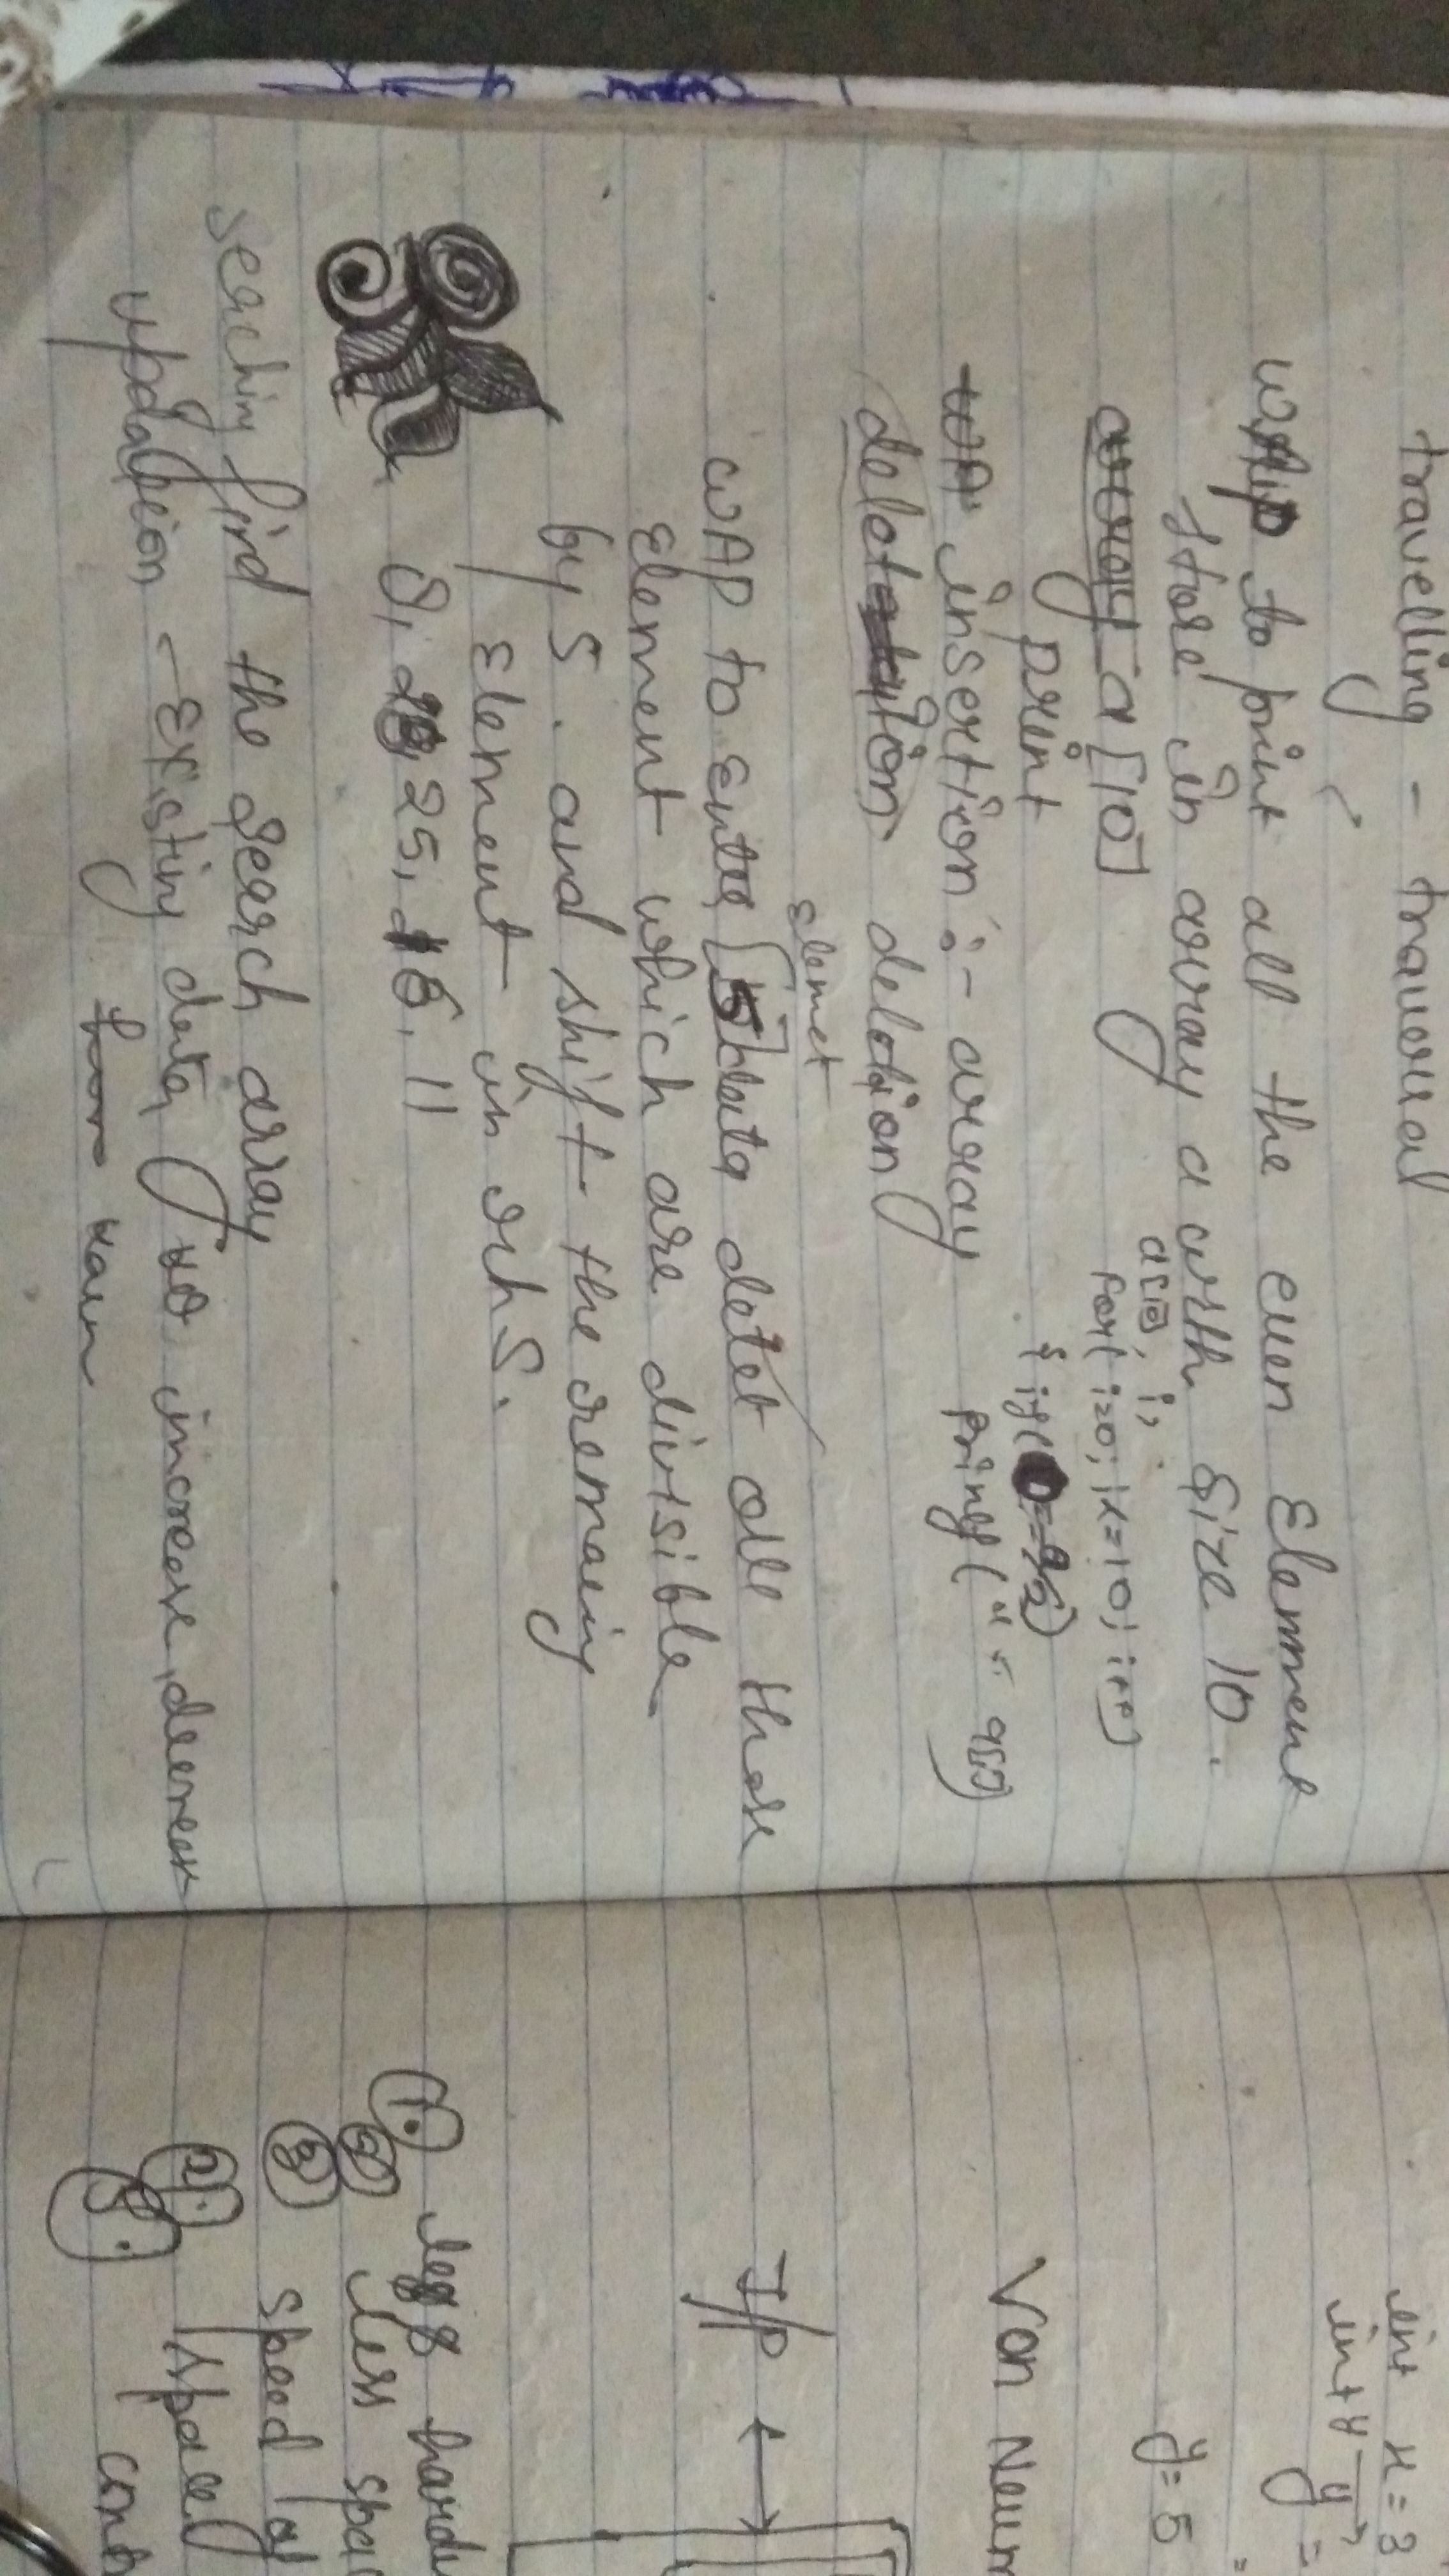 travelling - traversal
to print all the even Element
store in array a with size 10.
a[10]
a[10], i,
for( i=0; i<=10; i++)
print
{ if(
insertion :- array
printf(" "
deletion deletion
elemet
WAP to enter 5 data delet all those
Element which are divisible
by 5. and shift the remaing
Element in rhs.
25, 11
Seaching find the serch array
updation - Existing data no increase,
int x = 3
int y
y =
y = 5
Von Neum
I/P
1. hardw
2. less spac
3. speed
4. speed
5. cont